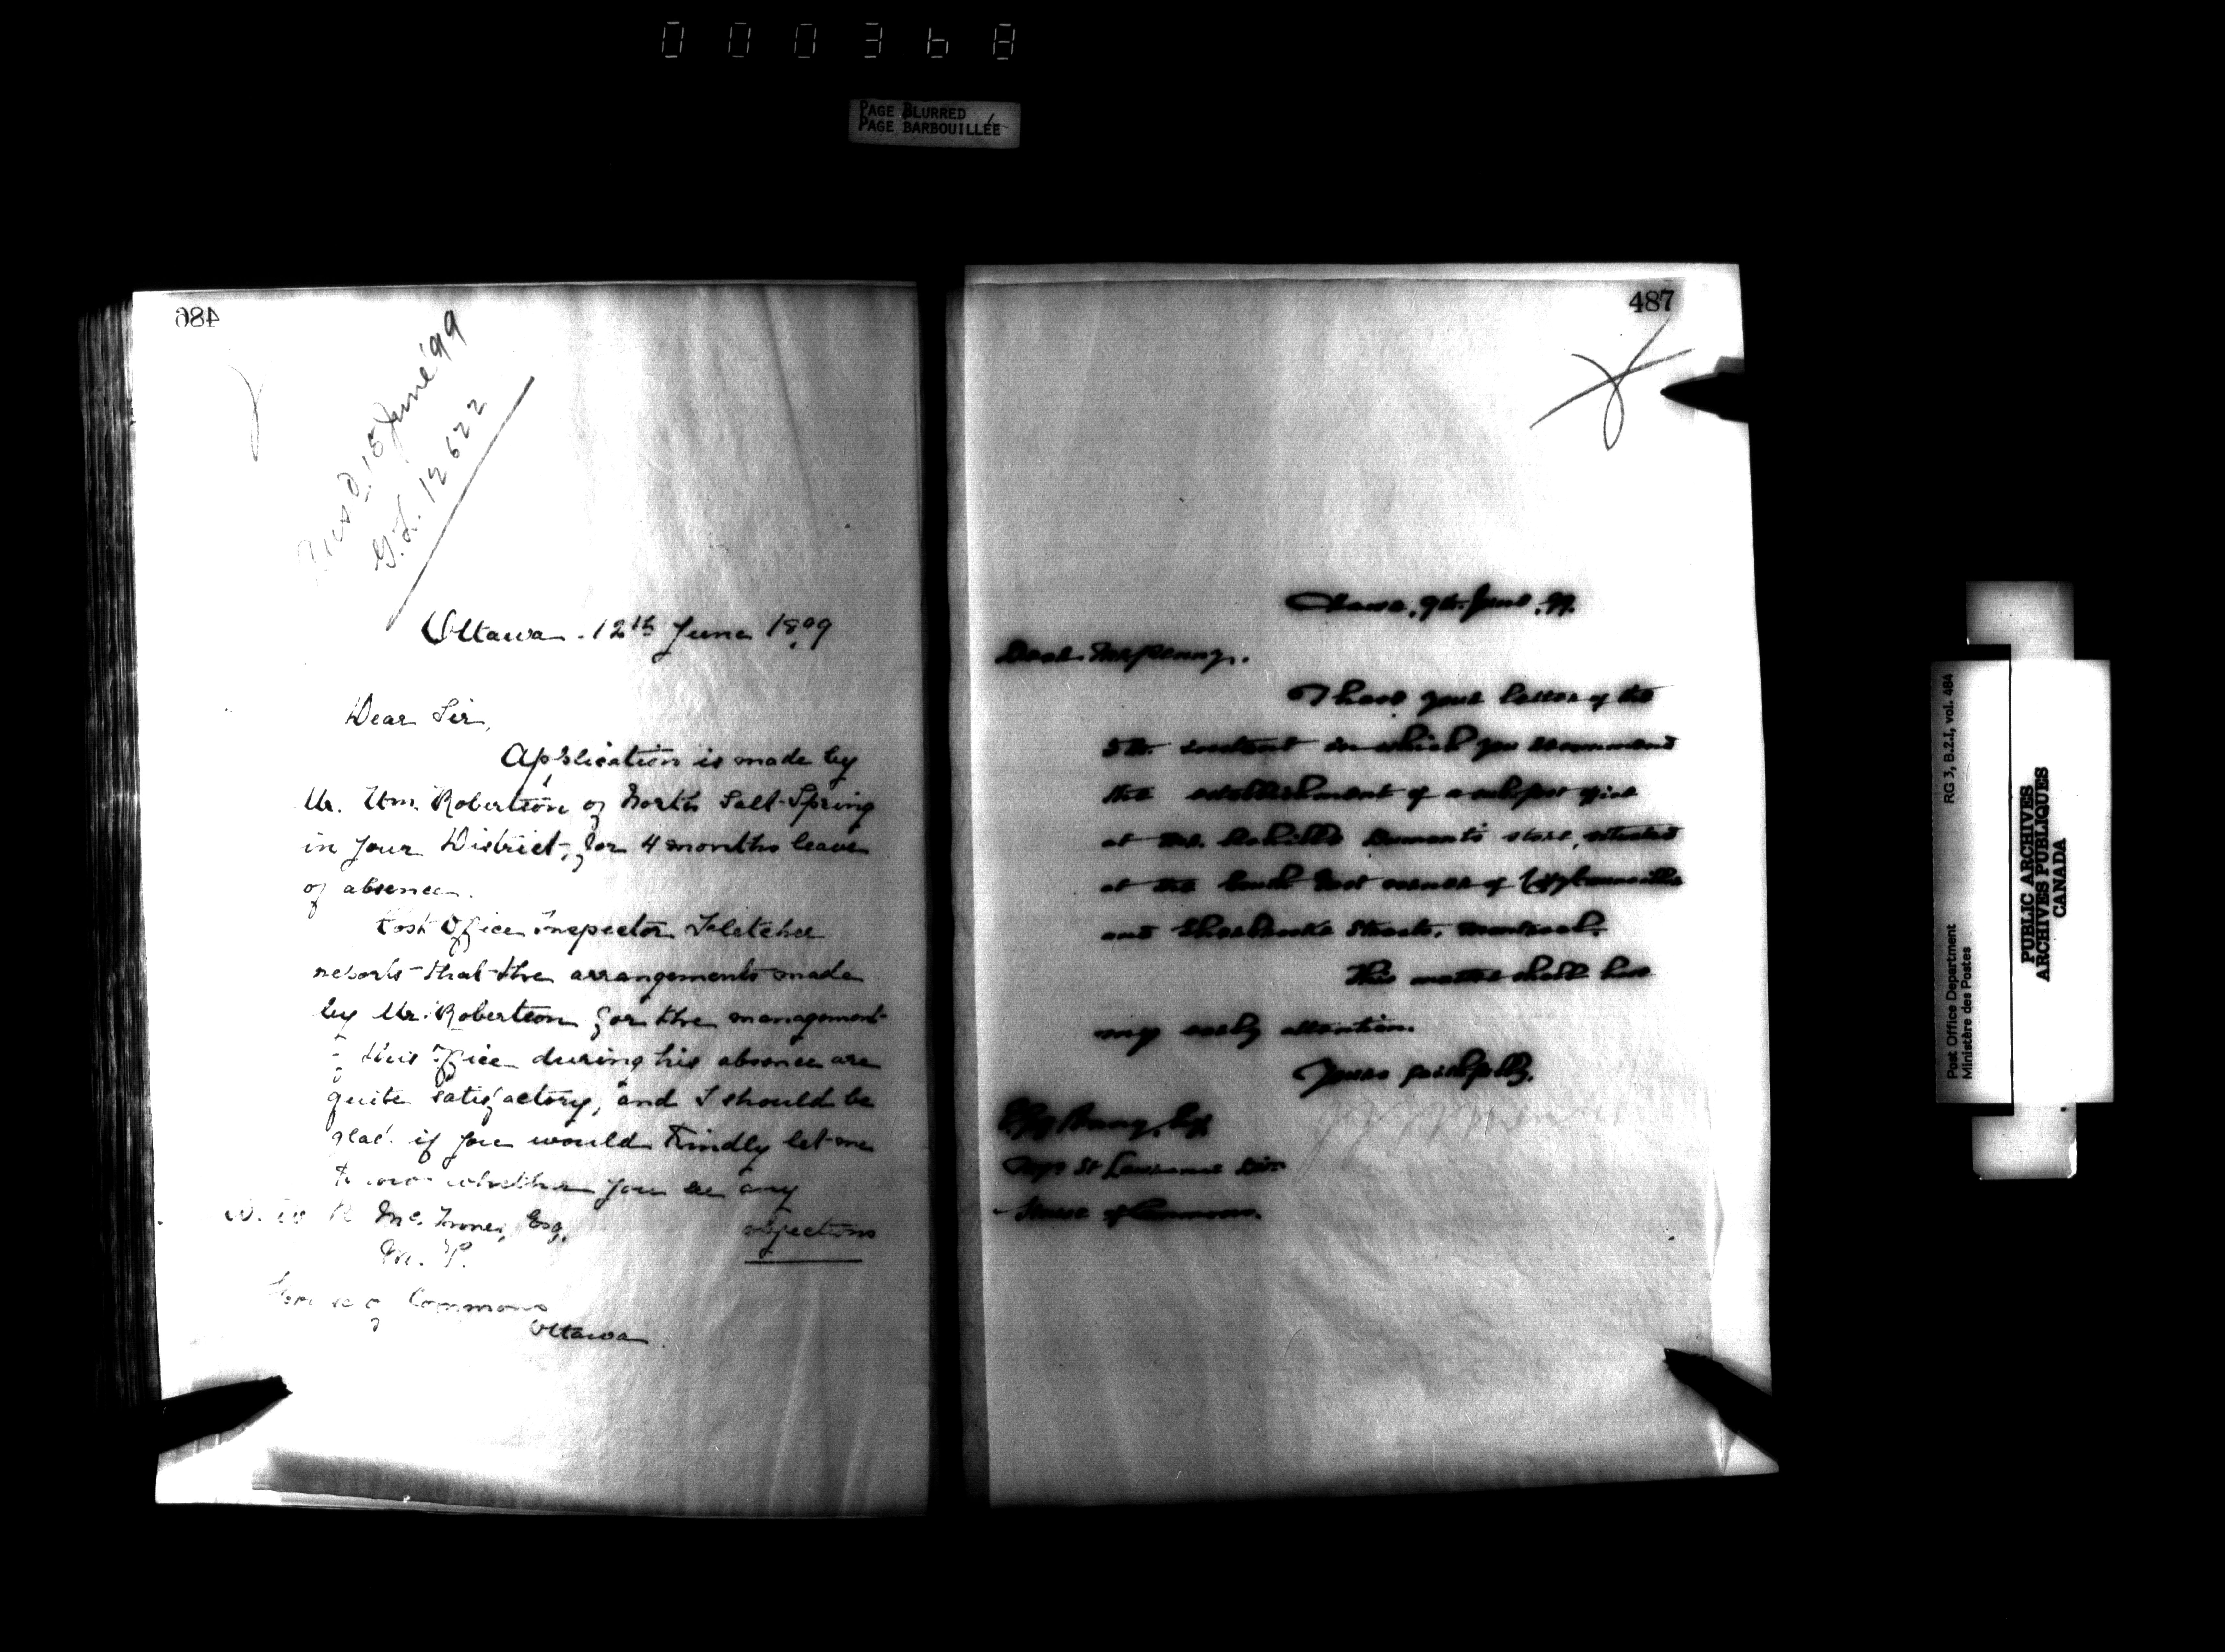 000368
PAGE BLURRED
PAGE BARBOUILLÉE
486
Ansd. 15 June '99
G.L. 12622
Ottawa. 12th June 1899
Dear Sir,
Application is made by
Mr. Wm. Robertson of North Salt Spring
in your District, for 4 months leave
of absence.
Post Office Inspector Fletcher
reports that the arrangements made
by Mr. Robertson for the management
of his office during his absence are
quite satisfactory, and I should be
glad if you would kindly let me
know whether you see any
objections
McInnes, Esq.
M.P.
House of Commons
Ottawa.
487
Ottawa, 9th June, 99.
Dear Mr Penny.
I have your letter of the
5th. instant in which you recommend
the establishment of a sub post office
at Mr. Dumont's store, situated
at the South East corner of
and Sherbrooke Streets, Montreal.
This matter shall have
my early attention.
Yours faithfully,
Penny, Esq
St Lawrence Div
House of Commons.
Post Office Department RG 3, B.2.I, vol. 484
Ministère des Postes
PUBLIC ARCHIVES
ARCHIVES PUBLIQUES
CANADA